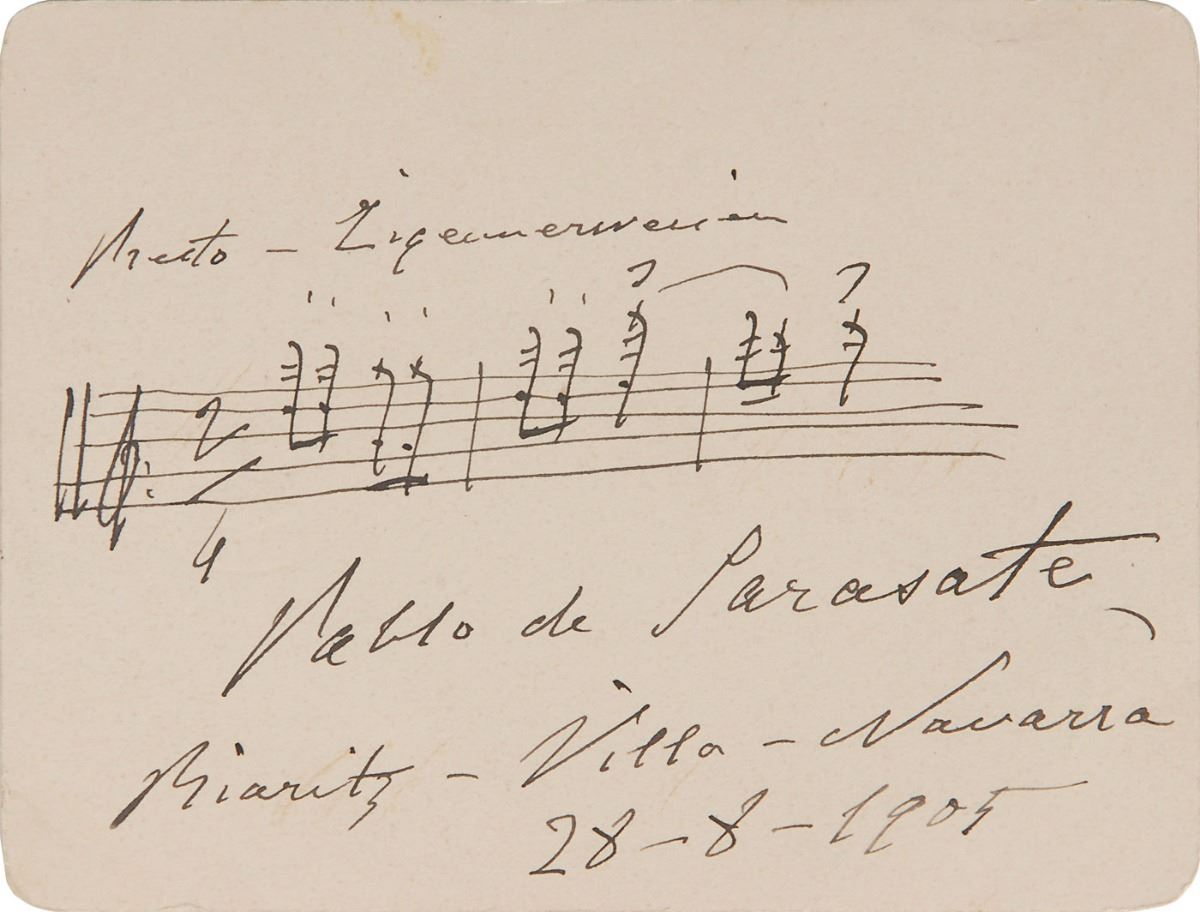 Presto - Zigeunerweisen
2
4
Pablo de Sarasate
Biaritz - Villa - Navarra
28-8-1905